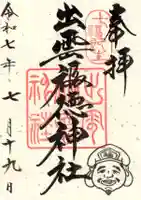 奉拝
出雲福徳神社
令和七年七月十九日